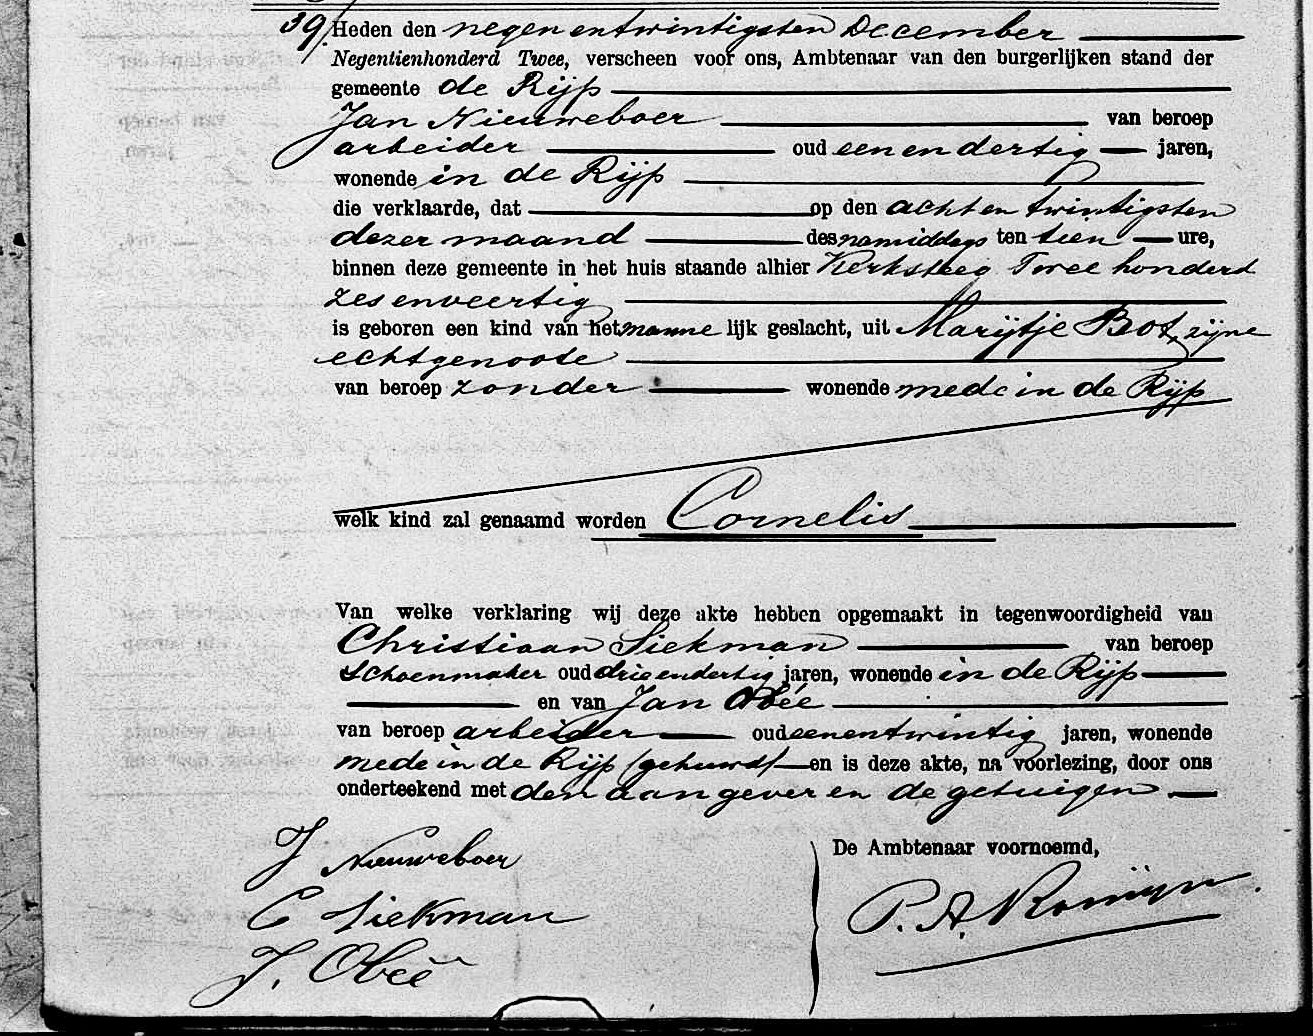 39/. Heden den negen en twintigsten December
Negentienhonderd Twee, verscheen voor ons, Ambtenaar van den burgerlijken stand der
gemeente de Rijp
Jan Nieuweboer van beroep
arbeider oud een en dertig jaren,
wonende in de Rijp
die verklaarde, dat op den acht en twintigsten
dezer maand des namiddags ten tien ure,
binnen deze gemeente in het huis staande alhier Kerksteeg Twee honderd
zes en veertig
is geboren een kind van het manne lijk geslacht, uit Marijtje Bot, zijne
echtgenoote
van beroep zonder wonende mede in de Rijp
welk kind zal genaamd worden Cornelis
Van welke verklaring wij deze akte hebben opgemaakt in tegenwoordigheid van
Christiaan Siekman van beroep
Schoenmaker oud drie en dertig jaren, wonende in de Rijp
en van Jan Obée
van beroep arbeider oud een en twintig jaren, wonende
mede in de Rijp (gehuwd) en is deze akte, na voorlezing, door ons
onderteekend met den aangever en de getuigen.
J Nieuweboer
C Siekman
J. Obeë
De Ambtenaar voornoemd,
P. A. Romijn.